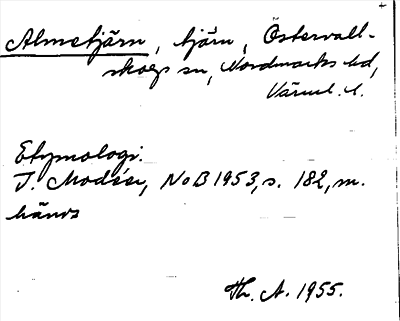 Almetjärn, tjärn, Östervall-
skogs sn, Nordmarks hd,
Värml. l.
Etymologi.
I. Modéer, NoB 1953, s. 182, m.
hänv.
Th. A. 1955.